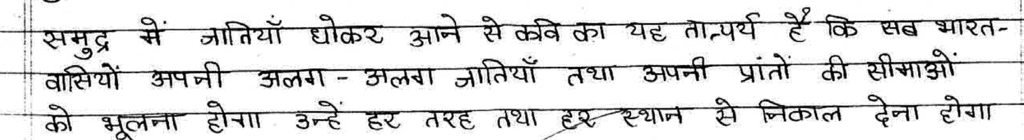 समुद्र में जातियाँ धोकर आने से कवि का यह तात्पर्य है कि सब भारत-
वासियों अपनी अलग - अलग जातियाँ तथा अपनी प्रांतों की सीमाओं
को भूलना होगा उन्हें हर तरह तथा हर स्थान से निकाल देना होगा